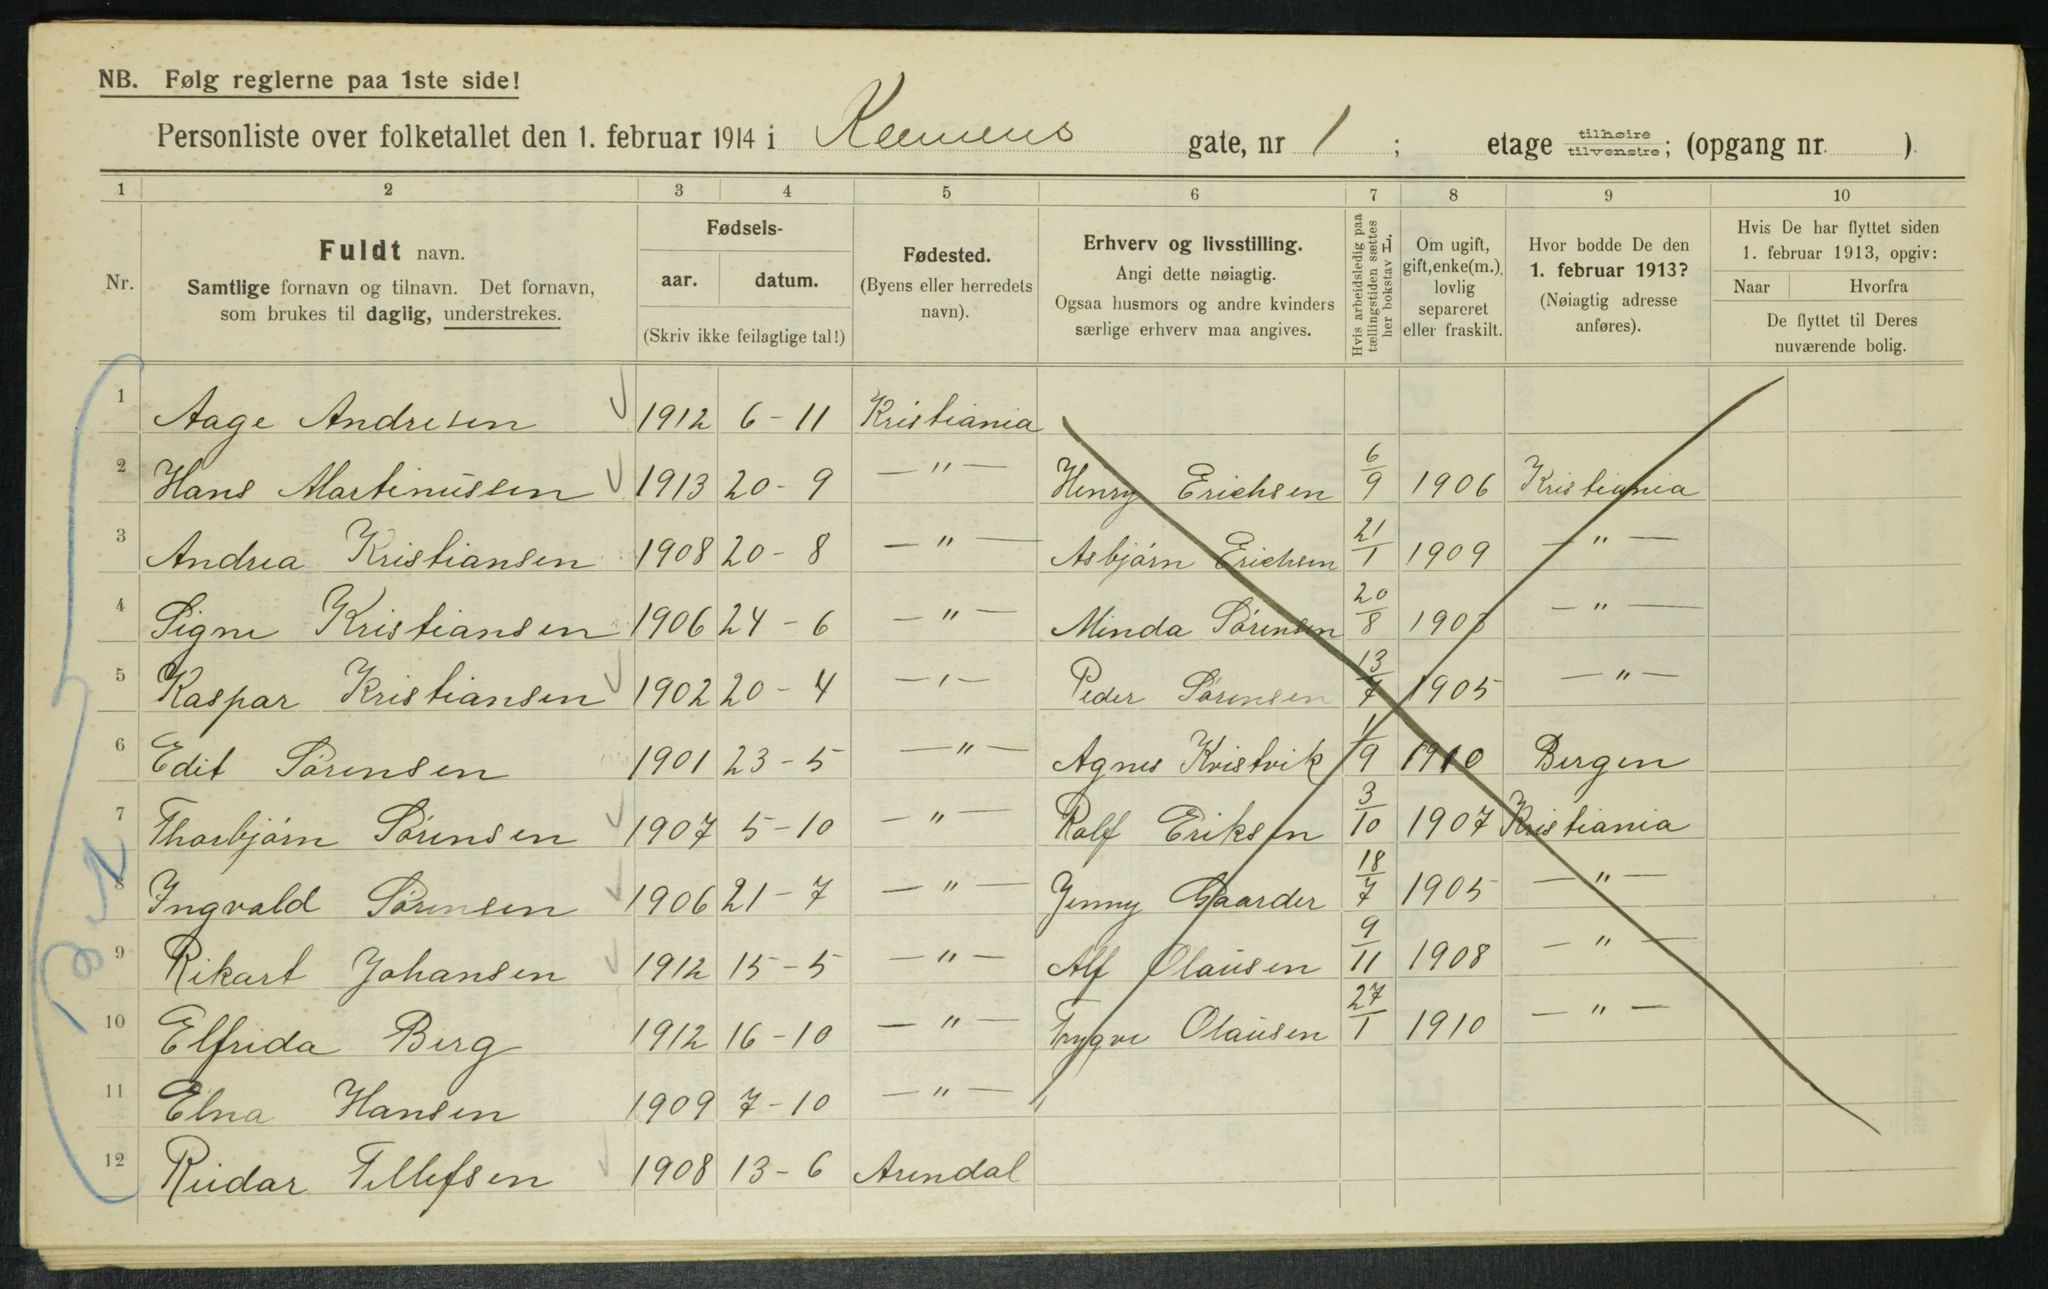 NB. Følg reglerne paa 1ste side!
Personliste over folketallet den 1. februar 1914 i Klemens gate, nr 1 ; etage tilhøire tilvenstre; (opgang nr. ).
1 2 3 4 5 6 7 8 9 10
Nr.
Fuldt navn.
Samtlige fornavn og tilnavn. Det fornavn,
som brukes til daglig, understrekes.
Fødsels-
aar. datum.
(Skriv ikke feilagtige tal!)
Fødested.
(Byens eller herredets
navn).
Erhverv og livsstilling.
Angi dette nøiagtig.
Ogsaa husmors og andre kvinders
særlige erhverv maa angives.
Hvis arbeidsledig paa
tællingstiden sættes
her bokstav L.
Om ugift,
gift, enke(m.),
lovlig
separeret
eller fraskilt.
Hvor bodde De den
1. februar 1913?
(Nøiagtig adresse
anføres).
Hvis De har flyttet siden
1. februar 1913, opgiv:
Naar Hvorfra
De flyttet til Deres
nuværende bolig.
1 Aage Andresen 1912 6-11 Kristiania
2 Hans Martinussen 1913 20-9 —"— Henry Erichsen 6/9 1906 Kristiania
3 Andrea Kristiansen 1908 20-8 —"— Asbjörn Erichsen 21/1 1909 —"—
4 Signe Kristiansen 1906 24-6 —"— Minda Sörensen 20/8 1903 —"—
5 Kaspar Kristiansen 1902 20-4 —"— Peder Sörensen 13/7 1905 —"—
6 Edit Sörensen 1901 23-5 —"— Agnes Kvistvik 1/9 1910 Bergen
7 Thorbjörn Sörensen 1907 5-10 —"— Rolf Eriksen 3/10 1907 Kristiania
8 Ingvald Sörensen 1906 21-7 —"— Jenny Gaarder 18/7 1905 —"—
9 Rikart Johansen 1912 15-5 —"— Alf Olausen 9/11 1908 —"—
10 Elfrida Berg 1912 16-10 —"— Trygve Olausen 27/1 1910 —"—
11 Elna Hansen 1909 7-10 —"—
12 Reidar Tellefsen 1908 13-6 Arendal